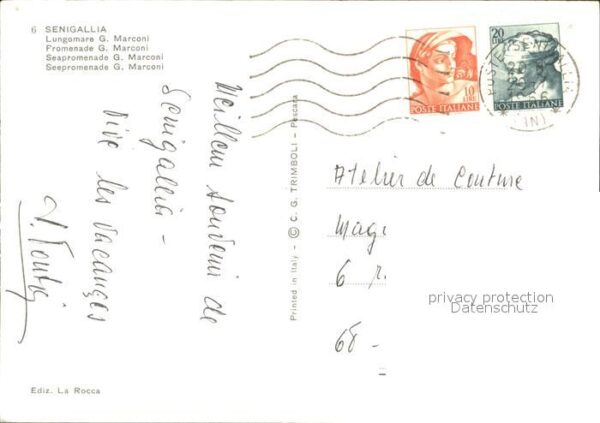 6 SENIGALLIA
Lungomare G. Marconi
Fromenade G. Marconi
Seapromenade G. Marconi
Seepromenade G. Marconi
10
LIRE
POSTE ITALIANE
20
LIRE
POSTE ITALIANE
SENIGALLIA
(AN)
Meilleur souvenir de
Senigallia -
Vive les vacances
Printed in Italy - © C. G. TRIMBOLI - Pescara
Atelier de Couture
Magi
6 r.
68 -
privacy protection
Datenschutz
Ediz. La Rocca